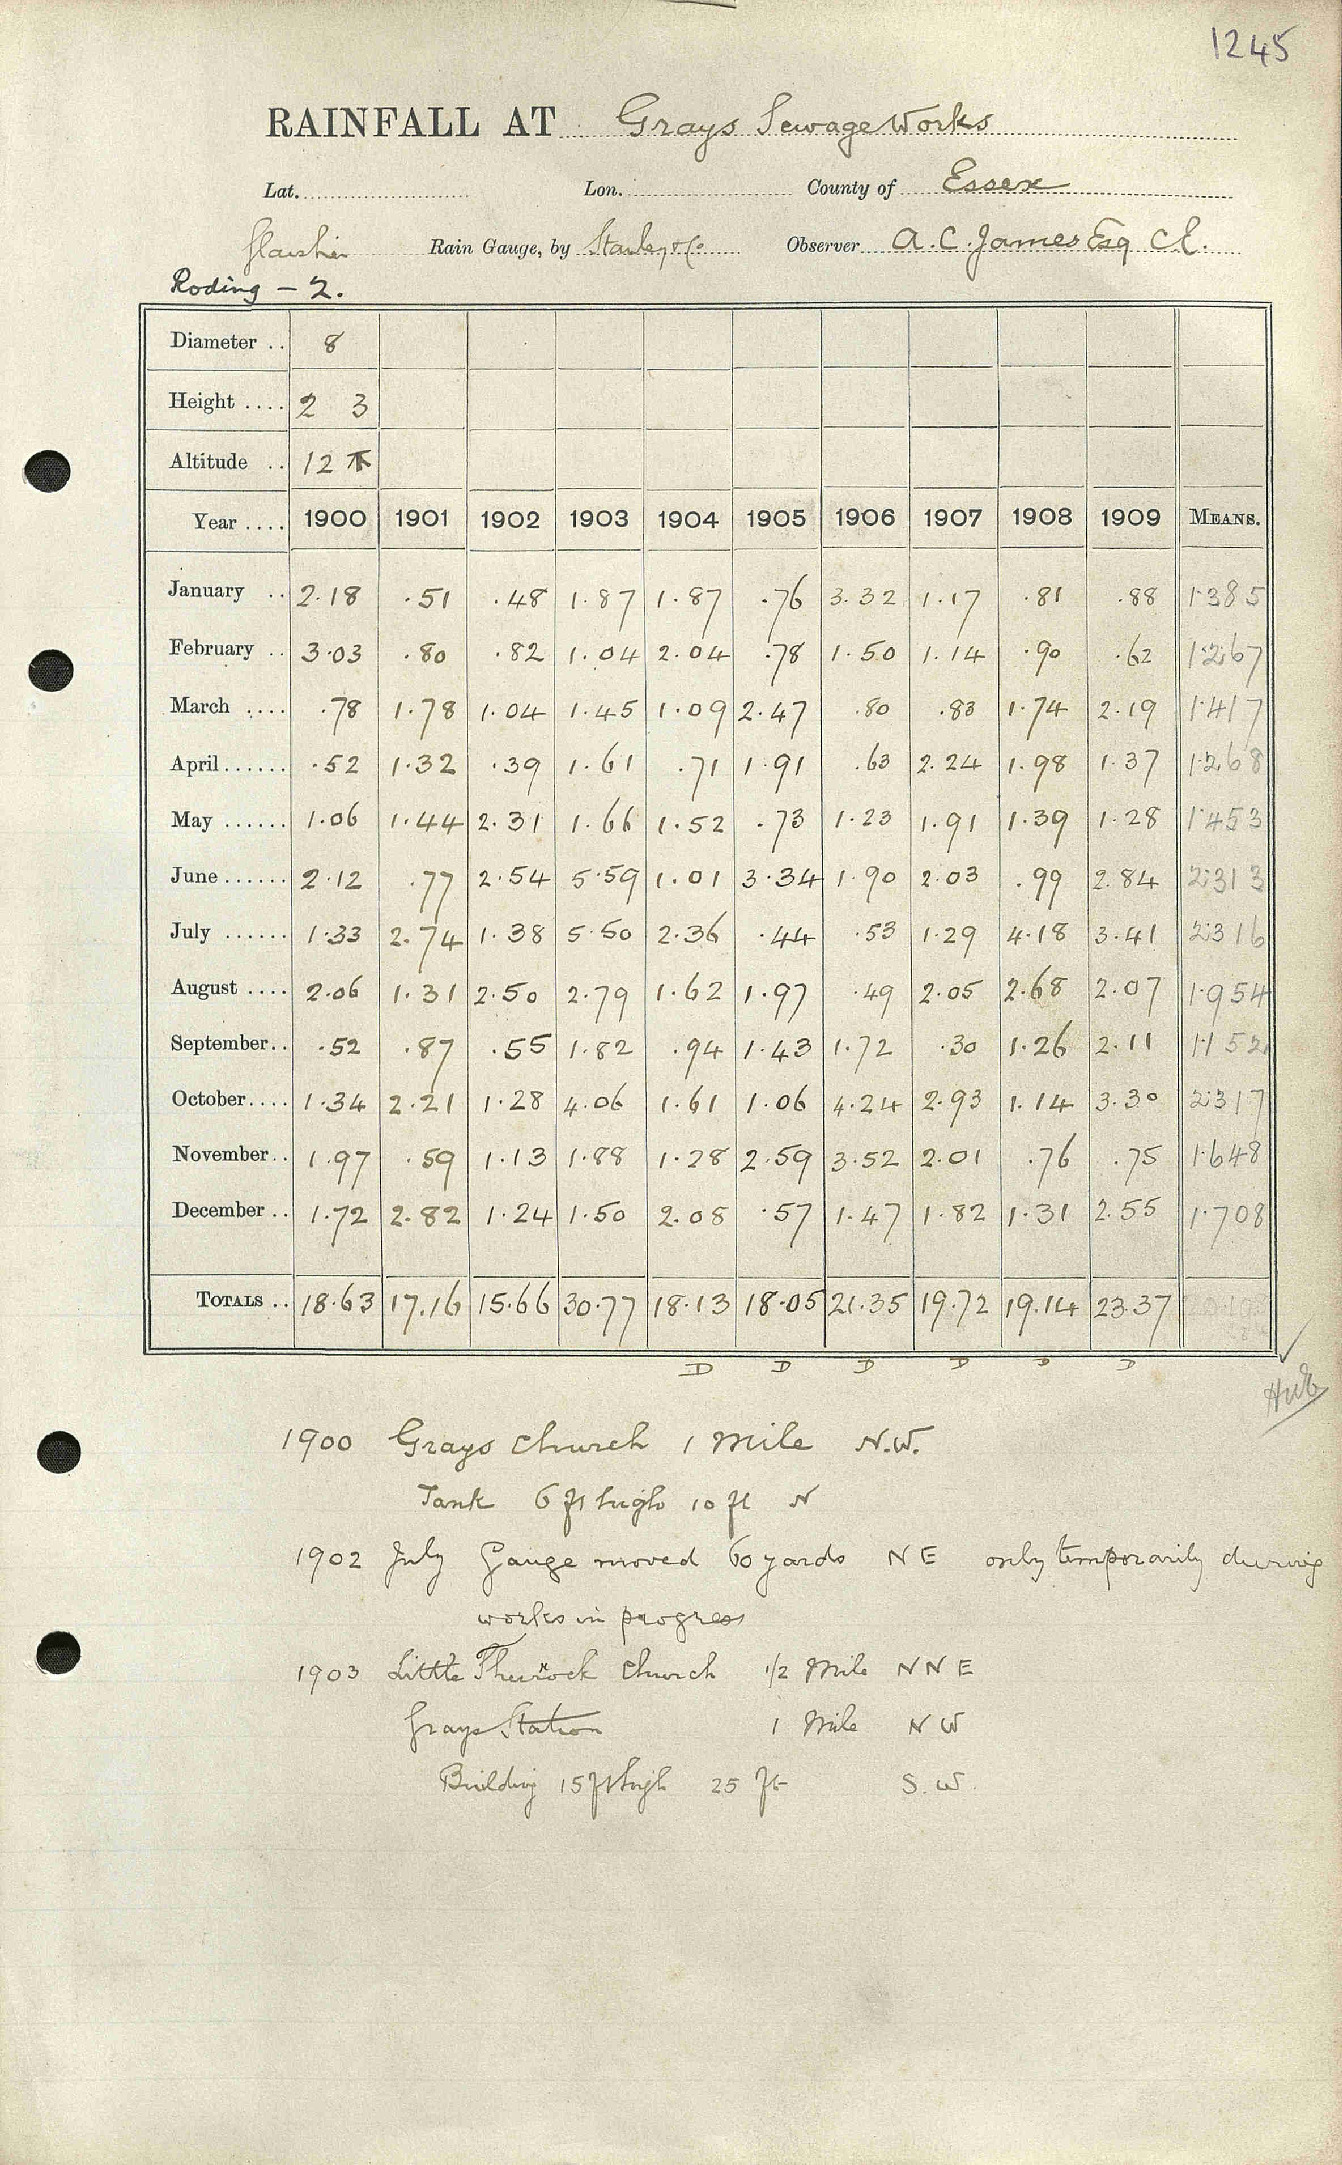 1245
RAINFALL AT Grays Sewage Works
Lat. Lon. County of Essex
Glaisher Rain Gauge, by Stanley & Co Observer A. C. James Esq C.E.
Roding - 2.
Diameter .. 8
Height .... 2 3
Altitude .. 12
Year .... 1900 1901 1902 1903 1904 1905 1906 1907 1908 1909 MEANS.
January .. 2.18 .51 .48 1.87 1.87 .76 3.32 1.17 .81 .88 1.385
February .. 3.03 .80 .82 1.04 2.04 .78 1.50 1.14 .90 .62 1.267
March .... .78 1.78 1.04 1.45 1.09 2.47 .80 .83 1.74 2.19 1.417
April ...... .52 1.32 .39 1.61 .71 1.91 .63 2.24 1.98 1.37 1.268
May ...... 1.06 1.44 2.31 1.66 1.52 .73 1.23 1.91 1.39 1.28 1.453
June ...... 2.12 .77 2.54 5.59 1.01 3.34 1.90 2.03 .99 2.84 2.313
July ...... 1.33 2.74 1.38 5.50 2.36 .44 .53 1.29 4.18 3.41 2.316
August .... 2.06 1.31 2.50 2.79 1.62 1.97 .49 2.05 2.68 2.07 1.954
September .. .52 .87 .55 1.82 .94 1.43 1.72 .30 1.26 2.11 1.152
October .... 1.34 2.21 1.28 4.06 1.61 1.06 4.24 2.93 1.14 3.30 2.317
November .. 1.97 .59 1.13 1.88 1.28 2.59 3.52 2.01 .76 .75 1.648
December .. 1.72 2.82 1.24 1.50 2.08 .57 1.47 1.82 1.31 2.55 1.708
TOTALS .. 18.63 17.16 15.66 30.77 18.13 18.05 21.35 19.72 19.14 23.37
D D D D D D
1900 Grays Church 1 Mile N.W.
Tank 6 ft high 10 ft N
1902 July Gauge moved 60 yards NE only temporarily during
works in progress
1903 Little Thurrock Church 1/2 Mile NNE
Grays Station 1 Mile NW
Building 15 ft high 25 ft S.W.